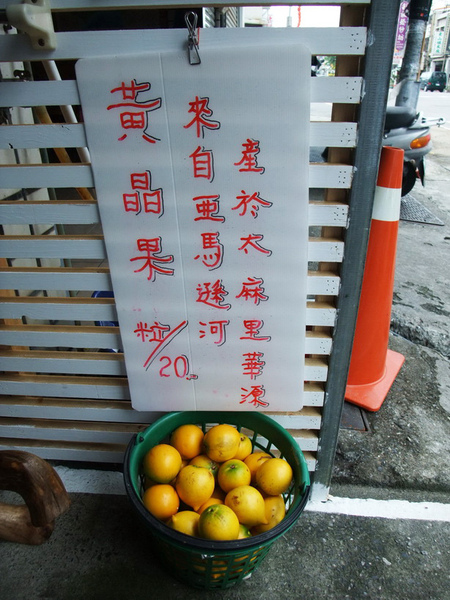 黃晶果
粒/20
來自亞馬遜河
產於太麻里華源